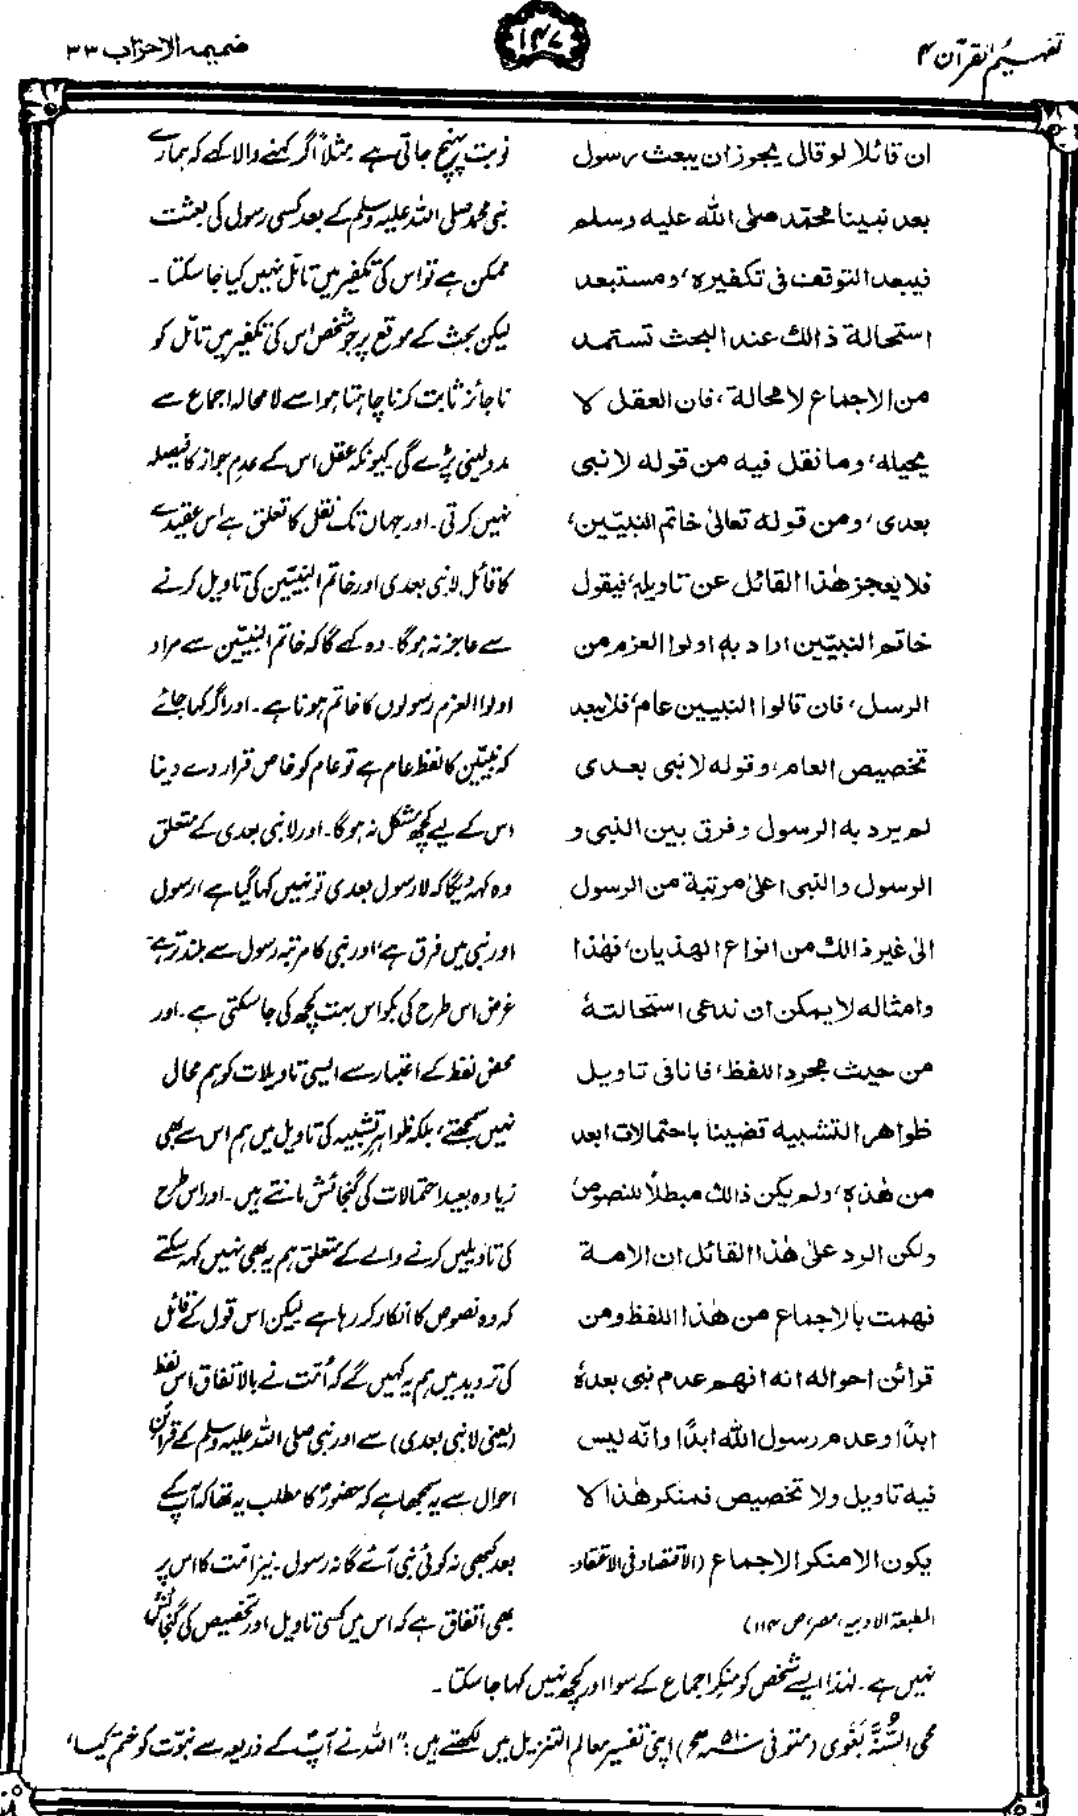 تفہیم القرآن ۴
۱۴۷
ضمیمہ الاحزاب ۳۳
ان قائلا لو قال یجوز ان یبعث رسول
بعد نبینا محمّد صلی اللہ علیہ وسلم
فیبعد التوقف فی تکفیرہ، ومستبعد
استحالۃ ذالک عند البحث تستمد
من الاجماع لا محالۃ، فان العقل لا
یحیلہ، وما نقل فیہ من قولہ لا نبی
بعدی، ومن قولہ تعالیٰ خاتم النبیّین،
فلا یعجز ھٰذا القائل عن تاویلہ، فیقول
خاتم النبیّین اراد بہ اولوا العزم من
الرسل، فان قالوا النبیین عام، فلا یبعد
تخصیص العام، وقولہ لا نبی بعدی
لم یرد بہ الرسول وفرق بین النبی و
الرسول والنبی اعلیٰ مرتبۃ من الرسول
الیٰ غیر ذالک من انواع الھذیان، فھٰذا
وامثالہ لا یمکن ان ندعی استحالتہٗ
من حیث مجرد اللفظ، فانا فی تاویل
ظواھر التشبیہ قضینا باحتمالات ابعد
من ھٰذہٖ، ولم یکن ذالک مبطلاً للنصوص،
ولکن الرد علیٰ ھٰذا القائل ان الامۃ
فھمت بالاجماع من ھٰذا اللفظ ومن
قرائن احوالہ انہ افھم عدم نبی بعدہٗ
ابدًا وعدم رسول اللہ ابدًا وانّہ لیس
فیہ تاویل ولا تخصیص فمنکر ھٰذا لا
یکون الا منکر الاجماع (الاقتصاد فی الاعتقاد۔
المطبعۃ الادبیہ، مصر، ص ۱۱۴)
نوبت پہنچ جاتی ہے۔ مثلاً اگر کہنے والا کہے کہ ہمارے
نبی محمد صلی اللہ علیہ وسلم کے بعد کسی رسول کی بعثت
ممکن ہے تو اس کی تکفیر میں تامّل نہیں کیا جا سکتا۔
لیکن بحث کے موقع پر جو شخص اس کی تکفیر میں تامّل کو
ناجائز ثابت کرنا چاہتا ہو اسے لامحالہ اجماع سے
مدد لینی پڑے گی کیونکہ عقل اس کے عدمِ جواز کا فیصلہ
نہیں کرتی۔ اور جہاں تک نقل کا تعلق ہے اس عقیدے
کا قائل لا نبی بعدی اور خاتم النبیّین کی تاویل کرنے
سے عاجز نہ ہوگا۔ وہ کہے گا کہ خاتم النبیّین سے مراد
اولوا العزم رسولوں کا خاتم ہونا ہے۔ اور اگر کہا جائے
کہ نبیّین کا لفظ عام ہے تو عام کو خاص قرار دے دینا
اس کے لیے کچھ مشکل نہ ہوگا۔ اور لا نبی بعدی کے متعلق
وہ کہہ دیگا کہ لا رسول بعدی تو نہیں کہا گیا ہے، رسول
اور نبی میں فرق ہے، اور نبی کا مرتبہ رسول سے بلند تر ہے۔
غرض اس طرح کی بکواس بہت کچھ کی جا سکتی ہے۔ اور
محض لفظ کے اعتبار سے ایسی تاویلات کو ہم محال
نہیں سمجھتے، بلکہ ظواہرِ تشبیہ کی تاویل میں ہم اس سے بھی
زیادہ بعید احتمالات کی گنجائش مانتے ہیں۔ اور اس طرح
کی تاویلیں کرنے والے کے متعلق ہم یہ بھی نہیں کہہ سکتے
کہ وہ نصوص کا انکار کر رہا ہے لیکن اس قول کے قائل
کی تردید میں ہم یہ کہیں گے کہ اُمّت نے بالاتفاق اس لفظ
(یعنی لا نبی بعدی) سے اور نبی صلی اللہ علیہ وسلم کے قرائنِ
احوال سے یہ سمجھا ہے کہ حضورؐ کا مطلب یہ تھا کہ آپؐ کے
بعد کبھی نہ کوئی نبی آئے گا نہ رسول۔ نیز امّت کا اس پر
بھی اتفاق ہے کہ اس میں کسی تاویل اور تخصیص کی گنجائش
نہیں ہے۔ لہٰذا ایسے شخص کو منکرِ اجماع کے سوا اور کچھ نہیں کہا جا سکتا۔
محی السُّنَّہ بَغَوی (متوفی ۵۱۰ھ) اپنی تفسیر معالم التنزیل میں لکھتے ہیں: "اللہ نے آپؐ کے ذریعہ سے نبوّت کو ختم کیا،